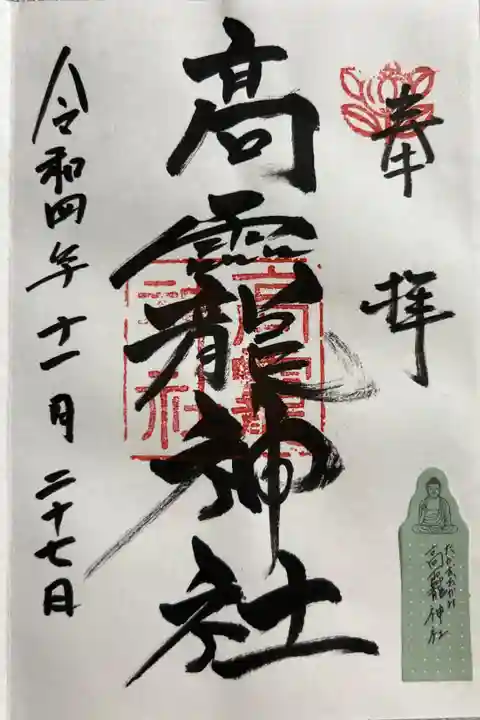 奉拝
高龗神社
高龗神社
令和四年十一月二十七日
高龗神社